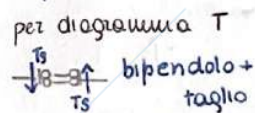 per diagramma T
Ts
bipendolo +
Ts
taglio